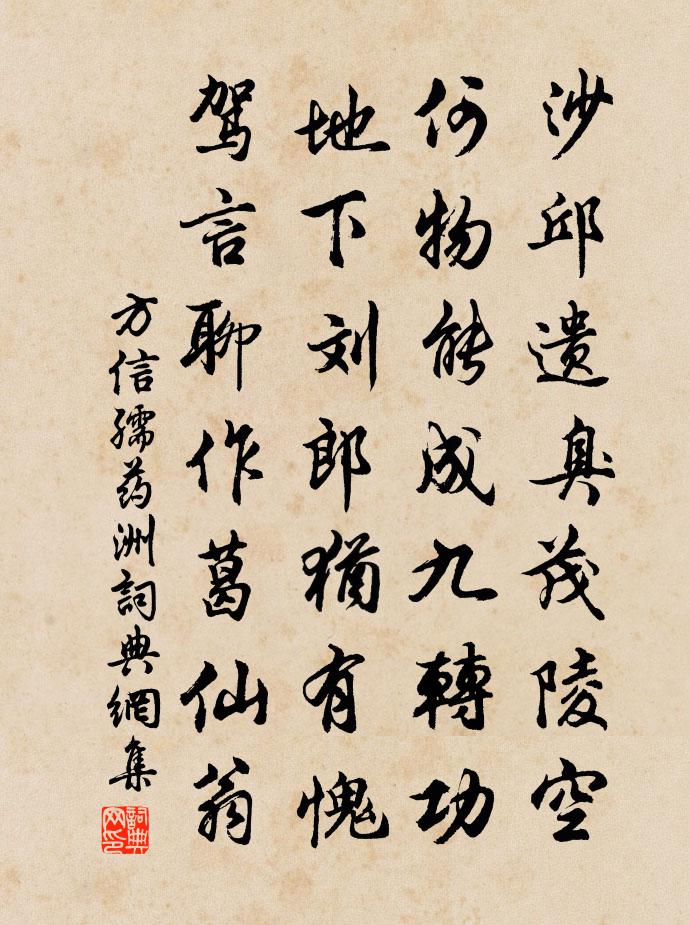 沙邱遗臭茂陵空
何物能成九轉功
地下刘郎犹有愧
驾言聊作葛仙翁
方信孺药洲詞典網集
詞典网印